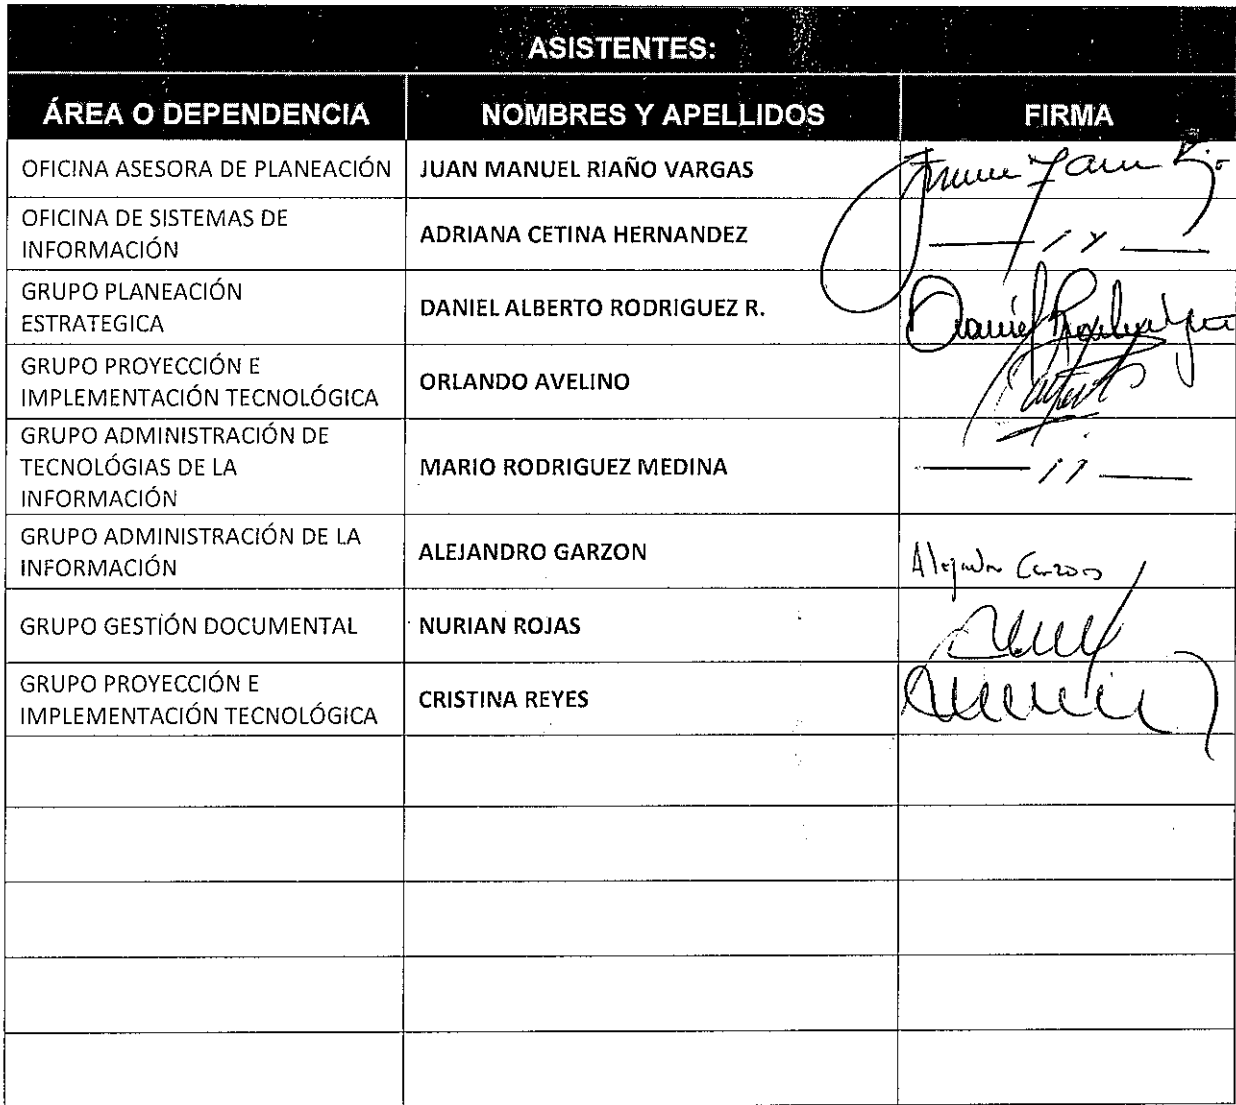 ASISTENTES:
ÁREA O DEPENDENCIA NOMBRES Y APELLIDOS FIRMA
OFICINA ASESORA DE PLANEACIÓN JUAN MANUEL RIAÑO VARGAS
OFICINA DE SISTEMAS DE
INFORMACIÓN
ADRIANA CETINA HERNANDEZ
GRUPO PLANEACIÓN
ESTRATEGICA
DANIEL ALBERTO RODRIGUEZ R.
Daniel Rodriguez
GRUPO PROYECCIÓN E
IMPLEMENTACIÓN TECNOLÓGICA
ORLANDO AVELINO
GRUPO ADMINISTRACIÓN DE
TECNOLÓGIAS DE LA
INFORMACIÓN
MARIO RODRIGUEZ MEDINA
GRUPO ADMINISTRACIÓN DE LA
INFORMACIÓN
ALEJANDRO GARZON
Alejandro Garzon
GRUPO GESTIÓN DOCUMENTAL NURIAN ROJAS
GRUPO PROYECCIÓN E
IMPLEMENTACIÓN TECNOLÓGICA
CRISTINA REYES